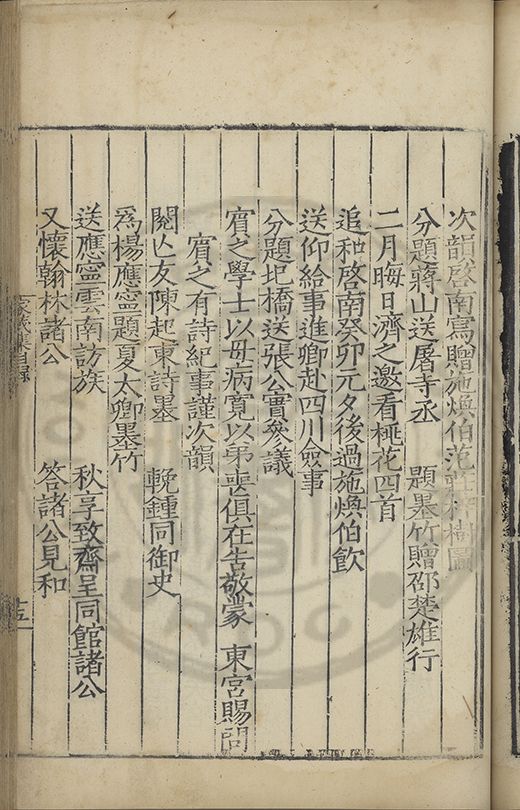 次韻啓南寫贈施煥伯范莊梓樹圖
分題蔣山送屠寺丞　題墨竹贈邵楚雄行
二月晦日濟之邀看桃花四首
追和啓南癸卯元夕後過施煥伯飲
送仰給事進卿赴四川僉事
分題圯橋送張公實參議
賓之學士以毋病寛以弟喪俱在告敬蒙　東宮賜問
賓之有詩紀事謹次韻
閱亾友陳起東詩墨　輓鍾同御史
爲楊應寧題夏太卿墨竹
送應寧雲南訪族　秋享致齋呈同館諸公
又懷翰林諸公　答諸公見和
家藏集目録
十五